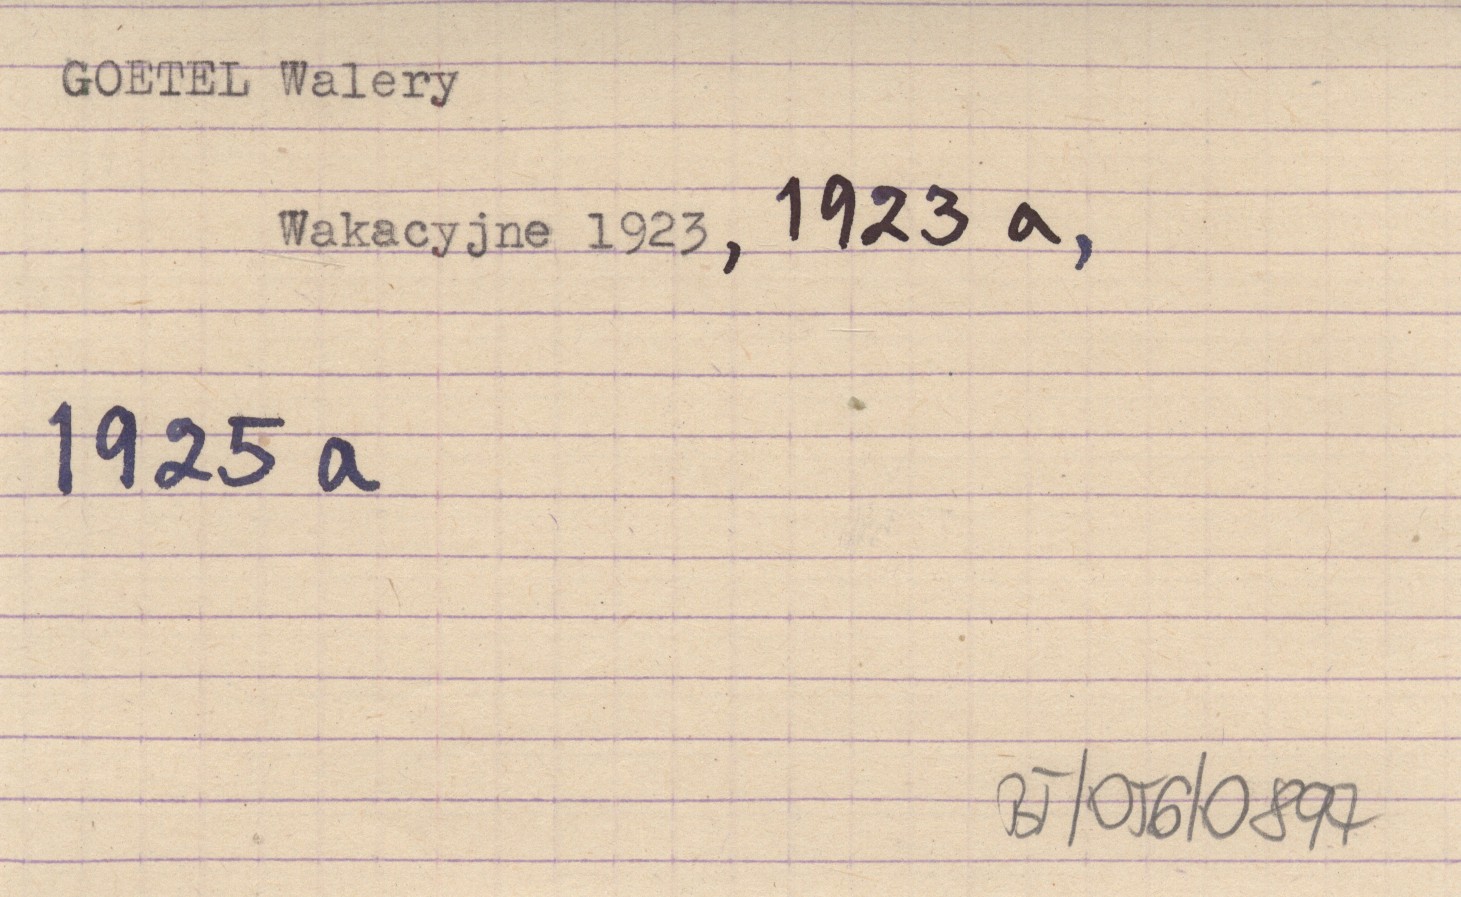 GOETEL Walery
Wakacyjne 1923, 1923 a,
1925 a
BT/056/0897